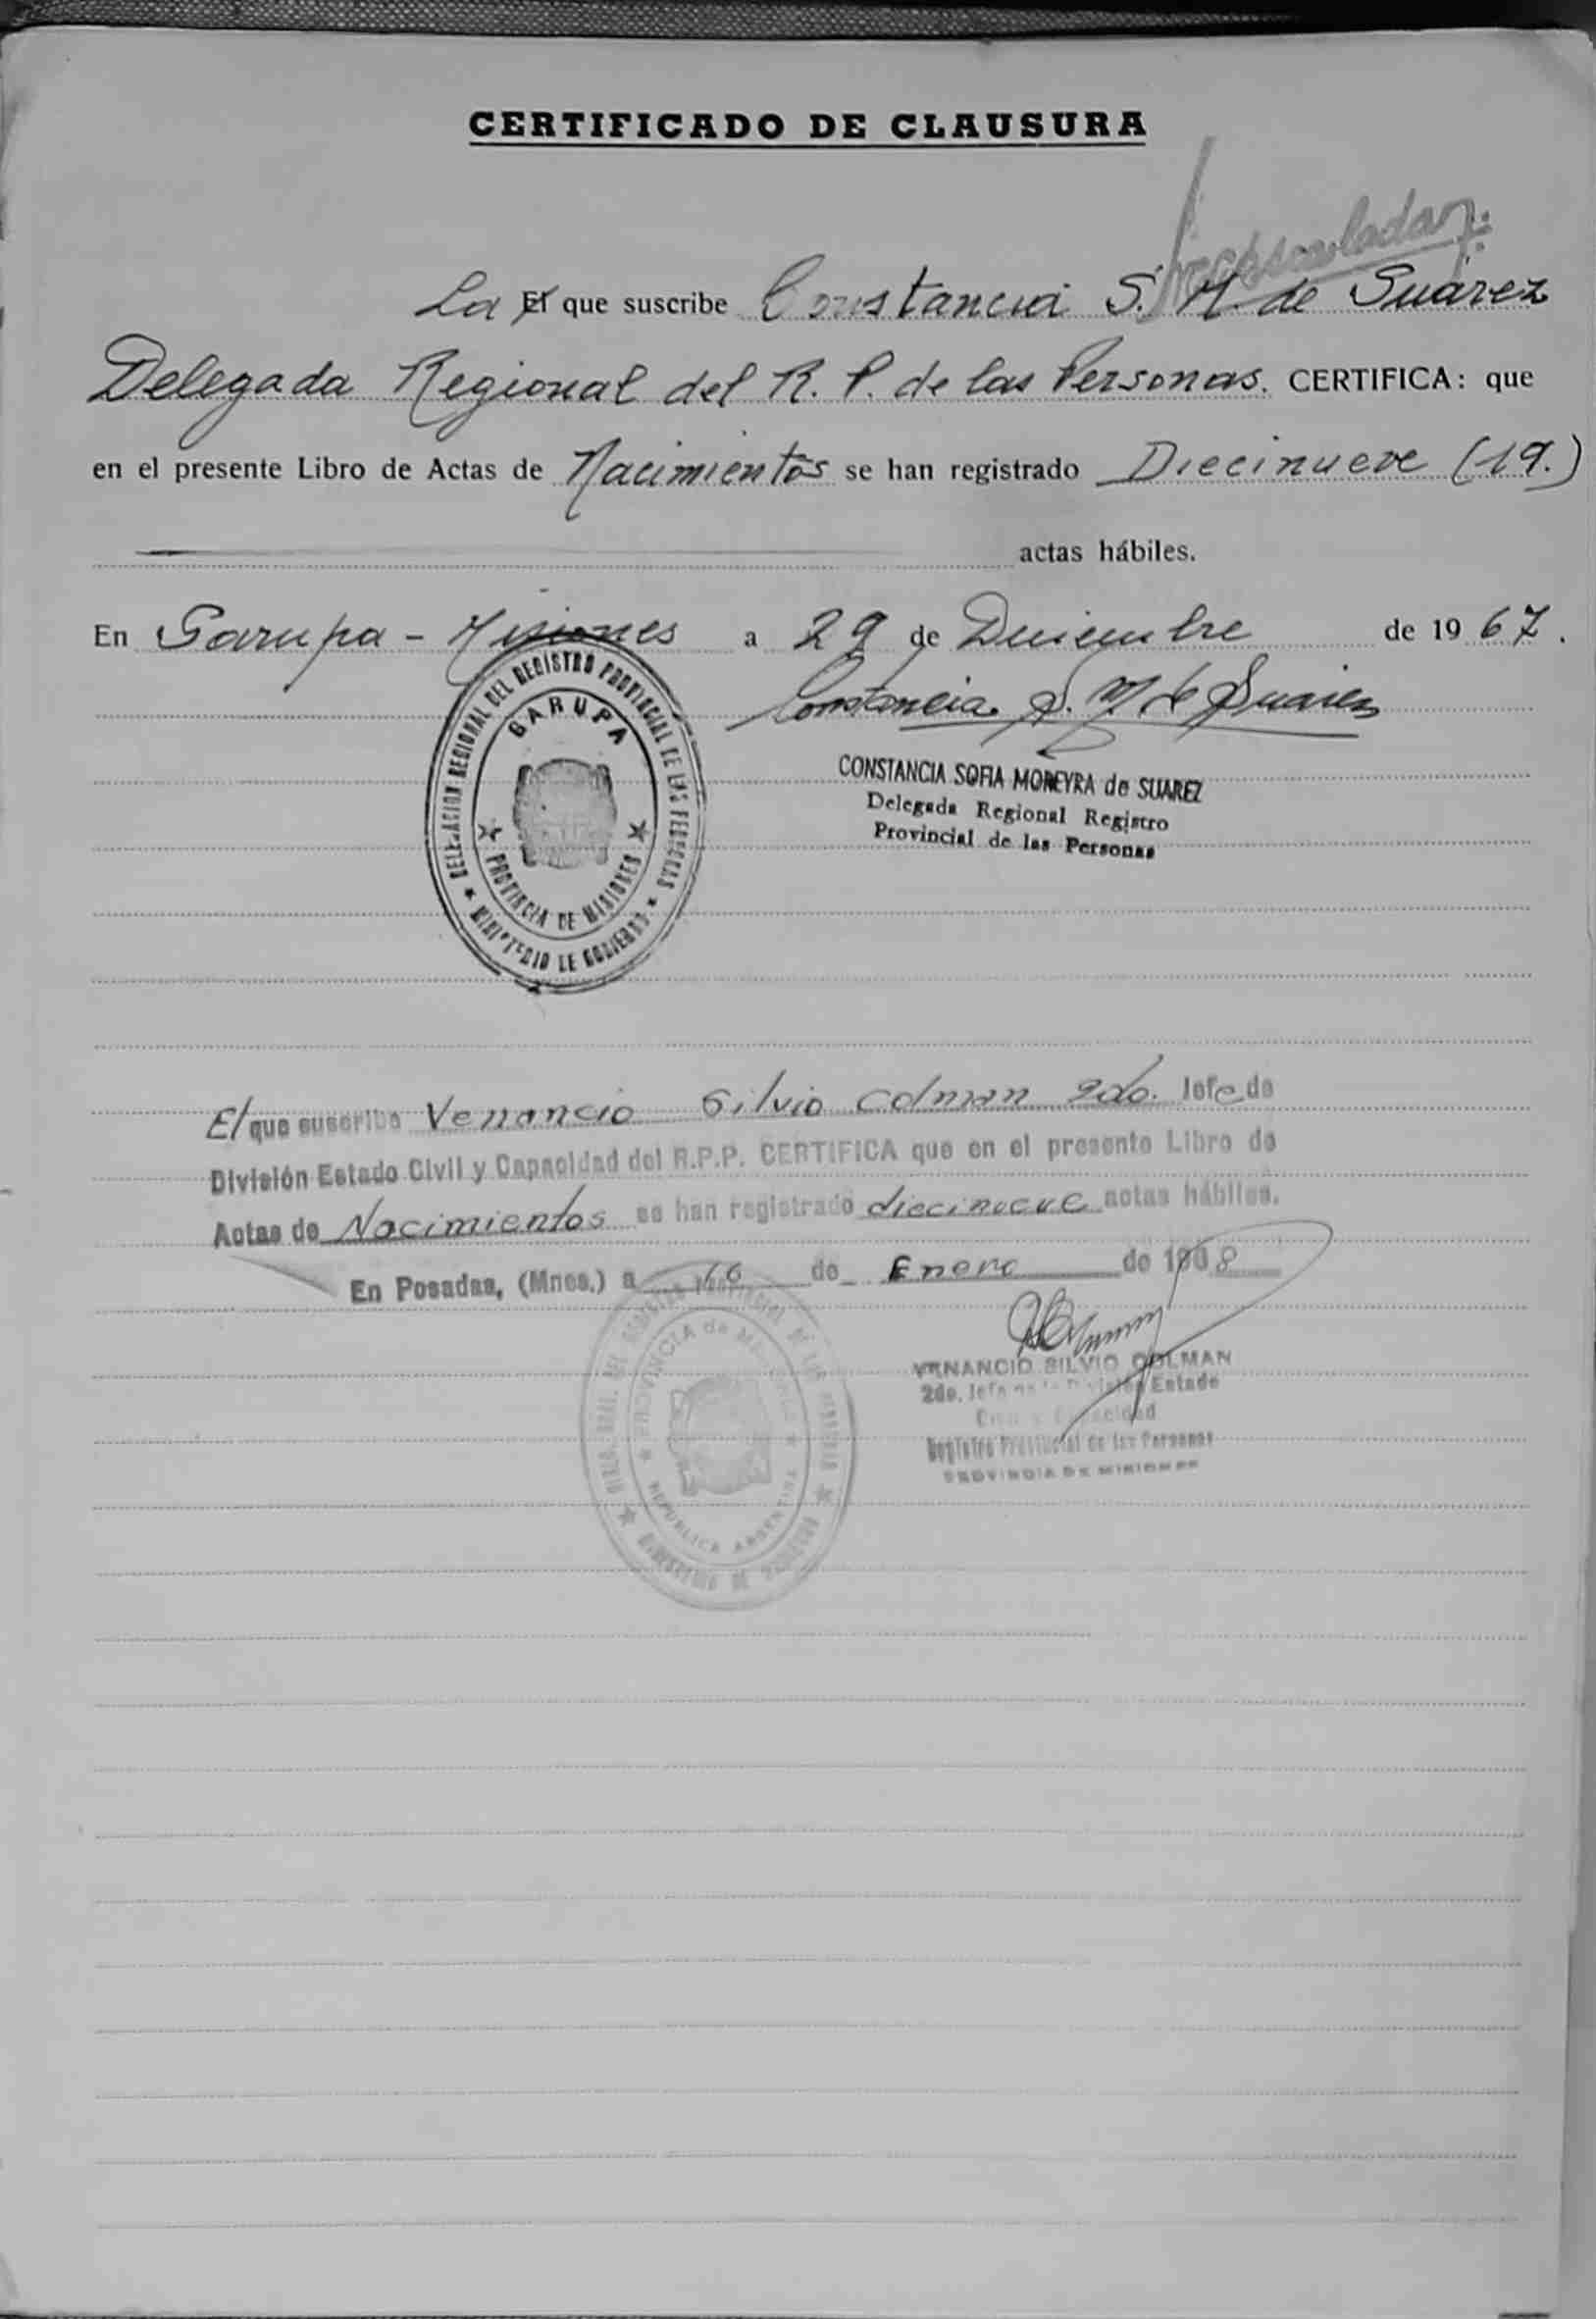 CERTIFICADO DE CLAUSURA
La El que suscribe Constancia S. M. de Suárez
Delegada Regional del R. P. de las Personas. CERTIFICA: que
en el presente Libro de Actas de Nacimientos se han registrado Diecinueve (19.)
actas hábiles.
En Garupa - Misiones a 29 de Diciembre de 1967.
Constancia S. M. de Suarez
CONSTANCIA SOFIA MOREYRA de SUAREZ
Delegada Regional Registro
Provincial de las Personas
DELEGACION REGIONAL DEL REGISTRO PROVINCIAL DE LAS PERSONAS
GARUPA
PROVINCIA DE MISIONES
MINISTERIO DE GOBIERNO
El que suscribe Venancio Silvio Colman 2do. Jefe de
División Estado Civil y Capacidad del R.P.P. CERTIFICA que en el presente Libro de
Actas de Nacimientos se han registrado diecinueve actas hábiles.
En Posadas, (Mnes.) a 16 de Enero de 1968
VENANCIO SILVIO COLMAN
2do. Jefe de la División Estado
Civil y Capacidad
Registro Provincial de las Personas
PROVINCIA DE MISIONES
PROVINCIA de MISIONES
REPUBLICA ARGENTINA